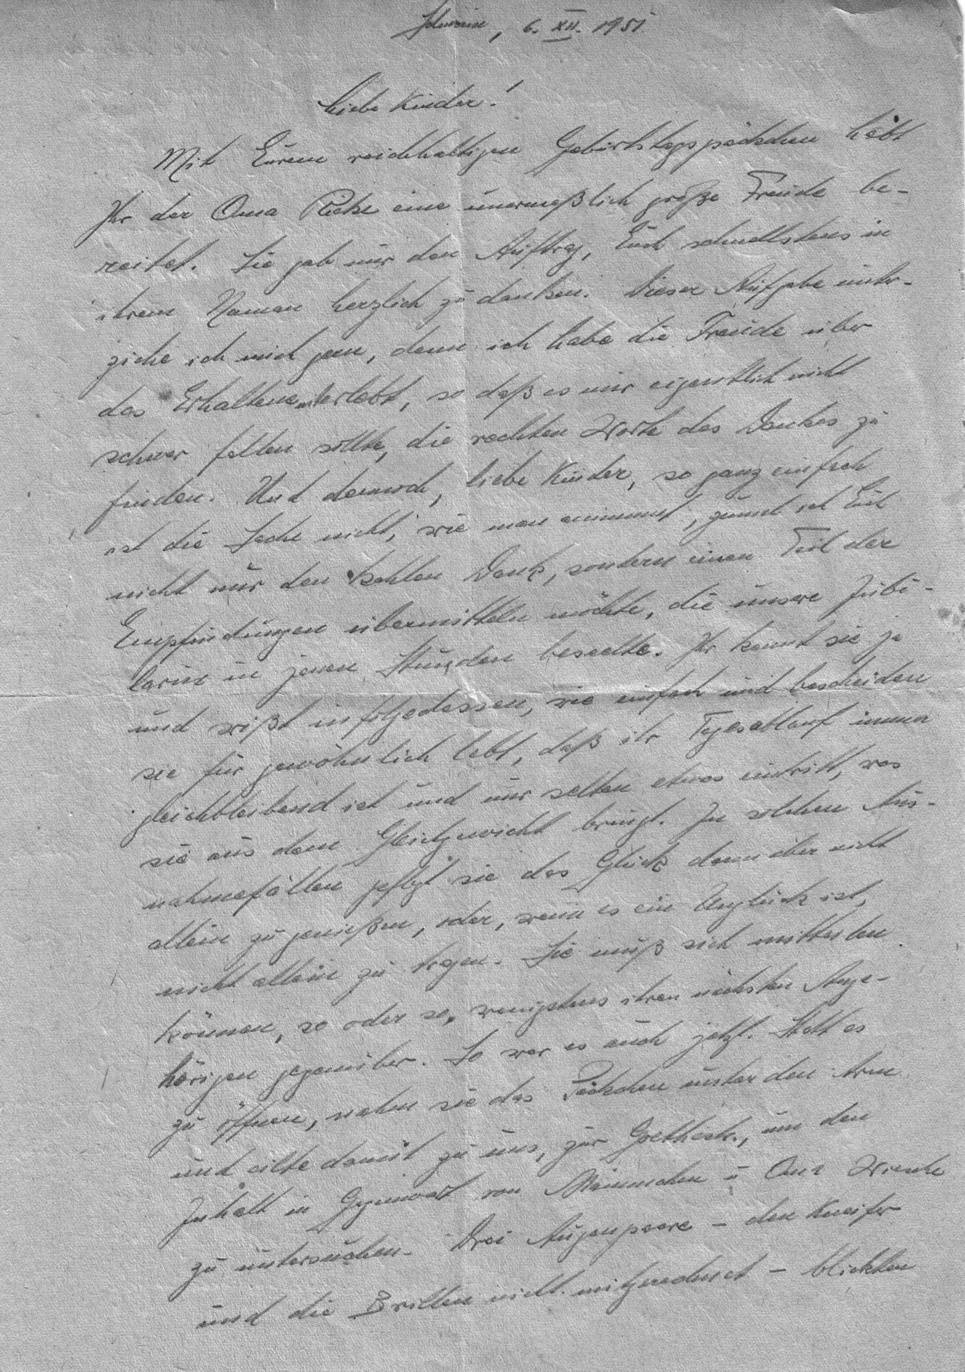 Schwerin, 6. XII. 1951
Liebe Kinder!
Mit Eurem reichhaltigen Geburtstagspäckchen habt
Ihr der Oma Rieke eine unermeßlich große Freude be-
reitet. Sie gab mir den Auftrag, Euch schnellstens in
ihrem Namen herzlich zu danken. Dieser Aufgabe unter-
ziehe ich mich gern, denn ich habe die Freude über
das Erhaltene miterlebt, so daß es mir eigentlich nicht
schwer fallen sollte, die rechten Worte des Dankes zu
finden. Und dennoch, liebe Kinder, so ganz einfach
ist die Sache nicht, wie man annimmt, zumal ich Euch
nicht nur den kahlen Dank, sondern einen Teil der
Empfindungen übermitteln möchte, die unsere Jubi-
larin in jenen Stunden beseelte. Ihr kennt sie ja
und wißt infolgedessen, wie einfach und bescheiden
sie für gewöhnlich lebt, daß ihr Tagesablauf immer
gleichbleibend ist und nur selten etwas eintritt, was
sie aus dem Gleichgewicht bringt. In solchen Aus-
nahmefällen pflegt sie das Glück dann aber nicht
allein zu genießen, oder, wenn es ein Unglück ist,
nicht allein zu tragen. Sie muß sich mitteilen
können, so oder so, wenigstens ihren nächsten Ange-
hörigen gegenüber. So war es auch jetzt. Statt es
zu öffnen, nahm sie das Päckchen unter den Arm
und eilte damit zu uns, zur Goethestr., um den
Inhalt in Gegenwart von Maimuchen u Oma
zu untersuchen. Drei Augenpaare – den Kneifer
und die Brillen nicht mitgerechnet – blickten